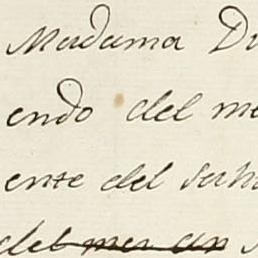 Madama Du
endo del me
ente del su
del mer an s